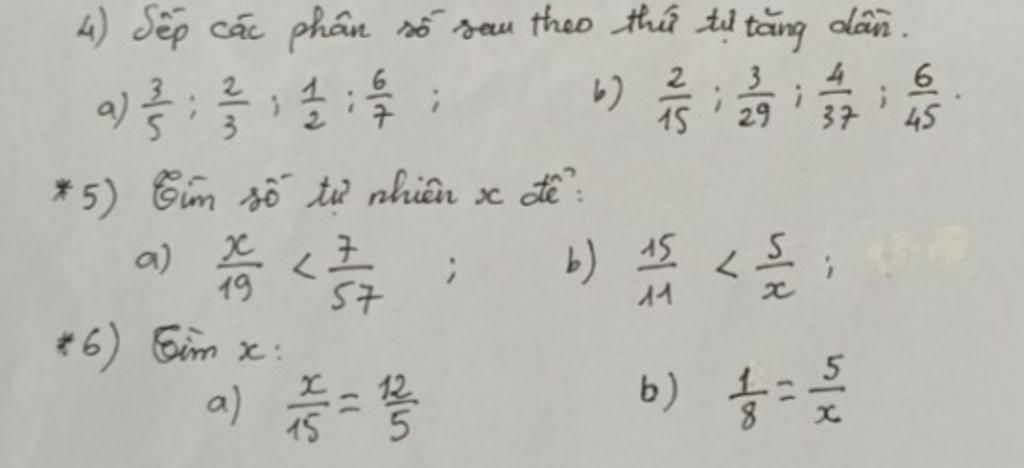 4) Sếp các phân số sau theo thứ tự tăng dần.
a) 3/5 ; 2/3 ; 1/2 ; 6/7 ; b) 2/15 ; 3/29 ; 4/37 ; 6/45.
*5) Tìm số tự nhiên x để:
a) x/19 < 7/57 ; b) 15/11 < 5/x ;
*6) Tìm x:
a) x/15 = 12/5 b) 1/8 = 5/x